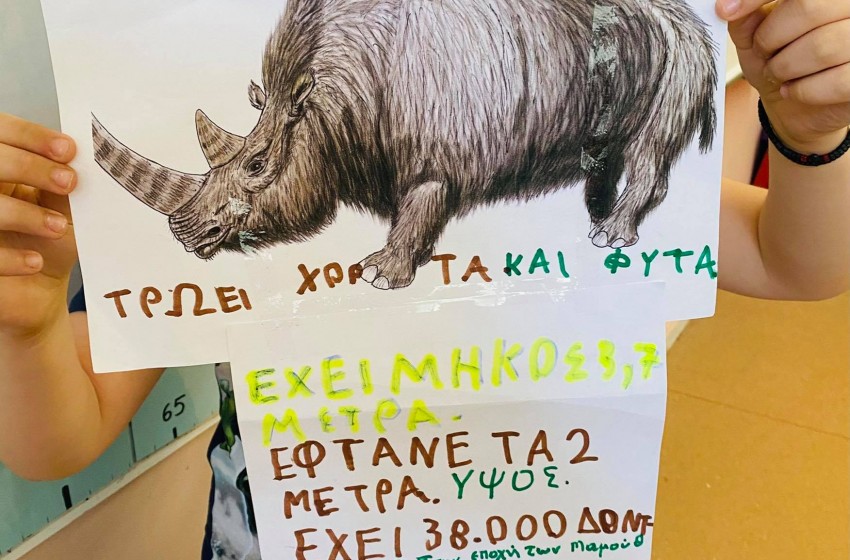 ΤΡΩΕΙ ΧΟΡ ΤΑ ΚΑΙ ΦΥΤΑ
ΕΧΕΙ ΜΗΚΟΣ 3,7
ΜΕΤΡΑ.
ΕΦΤΑΝΕ ΤΑ 2
ΜΕΤΡΑ. ΥΨΟΣ.
ΕΧΕΙ 38.000 ΔΟΝΤ
εποχή των Μαμούθ
65